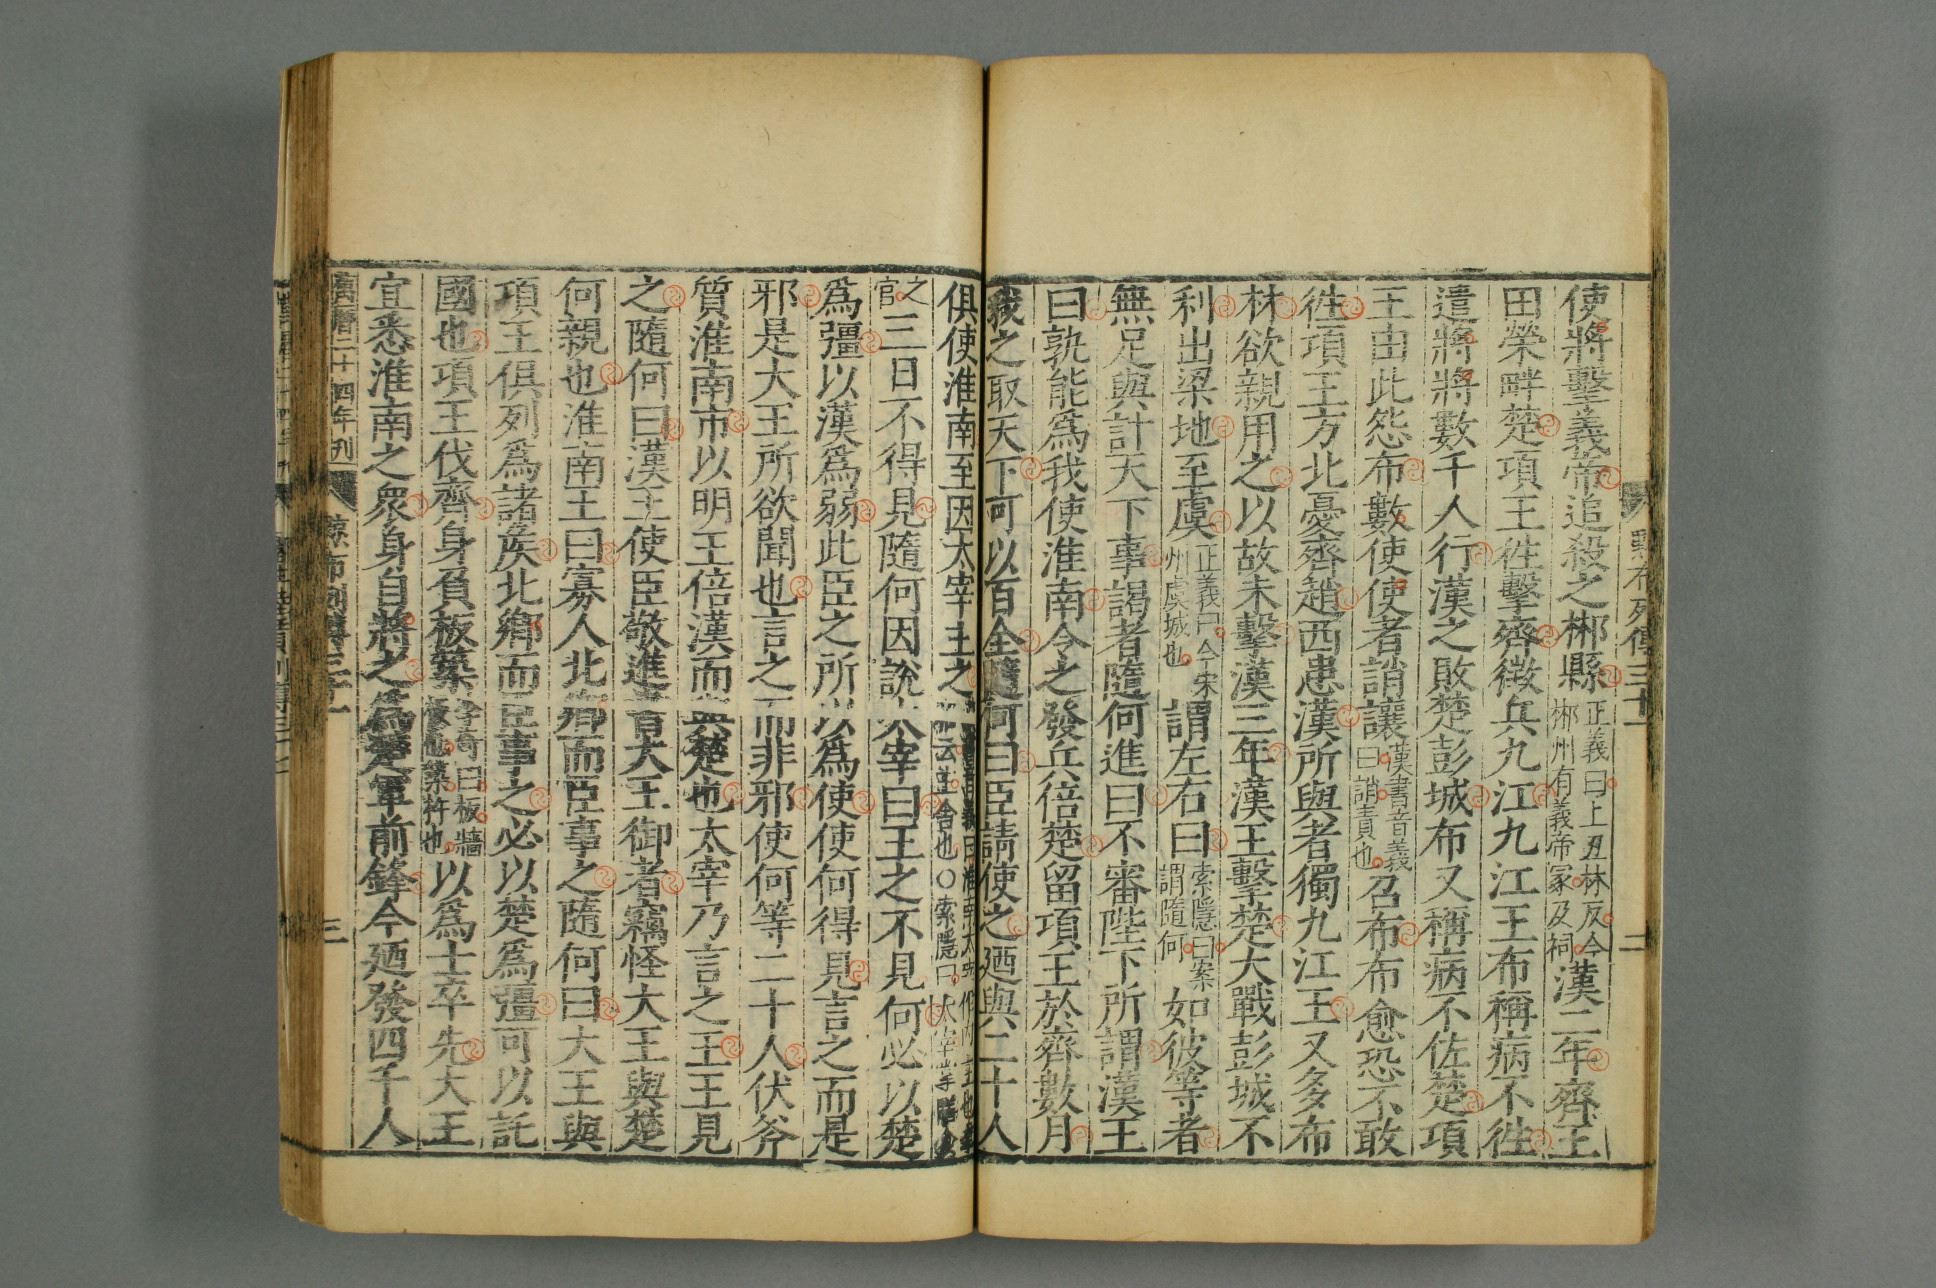 黥布列傳三十一 二
使將擊義帝追殺之郴縣正義曰上丑林反今郴州有義帝冢及祠漢二年齊王
田榮畔楚項王徃擊齊徵兵九江九江王布稱病不徃
遣將將數千人行漢之敗楚彭城布又稱病不佐楚項
王由此怨布數使使者誚讓漢書音義曰誚責也召布布愈恐不敢
徃項王方北憂齊趙西患漢所與者獨九江王又多布
材欲親用之以故未擊漢三年漢王擊楚大戰彭城不
利出梁地至虞正義曰今宋州虞城也謂左右曰索隱曰案謂隨何如彼等者
無足與計天下事謁者隨何進曰不審陛下所謂漢王
曰孰能爲我使淮南令之發兵倍楚留項王於齊數月
我之取天下可以百全隨何曰臣請使之廼與二十人
俱使淮南至因太宰主之
之官三日不得見隨何因說太宰曰王之不見何必以楚
爲彊以漢爲弱此臣之所以爲使使何得見言之而是
邪是大王所欲聞也言之而非邪使何等二十人伏斧
質淮南市以明王倍漢而與楚也太宰乃言之王王見
之隨何曰漢王使臣敬進書大王御者竊怪大王與楚
何親也淮南王曰寡人北鄉而臣事之隨何曰大王與
項王俱列爲諸矦北鄉而臣事之必以楚爲彊可以託
國也項王伐齊身負板築李奇曰板牆板也築杵也以爲士卒先大王
宜悉淮南之衆身自將之爲楚軍前鋒今廼發四千人
萬曆二十四年刊 黥布列傳三十一 三